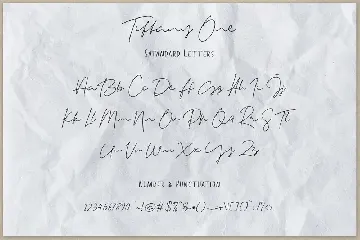 Tiffany One
Satandard Letters
Aa Bb Cc Dd Ee Ff Gg Hh Ii Jj
Kk Ll Mm Nn Oo Pp Qq Rr Ss Tt
Uu Vv Ww Xx Yy Zz
Number & Punctuation
1234567890